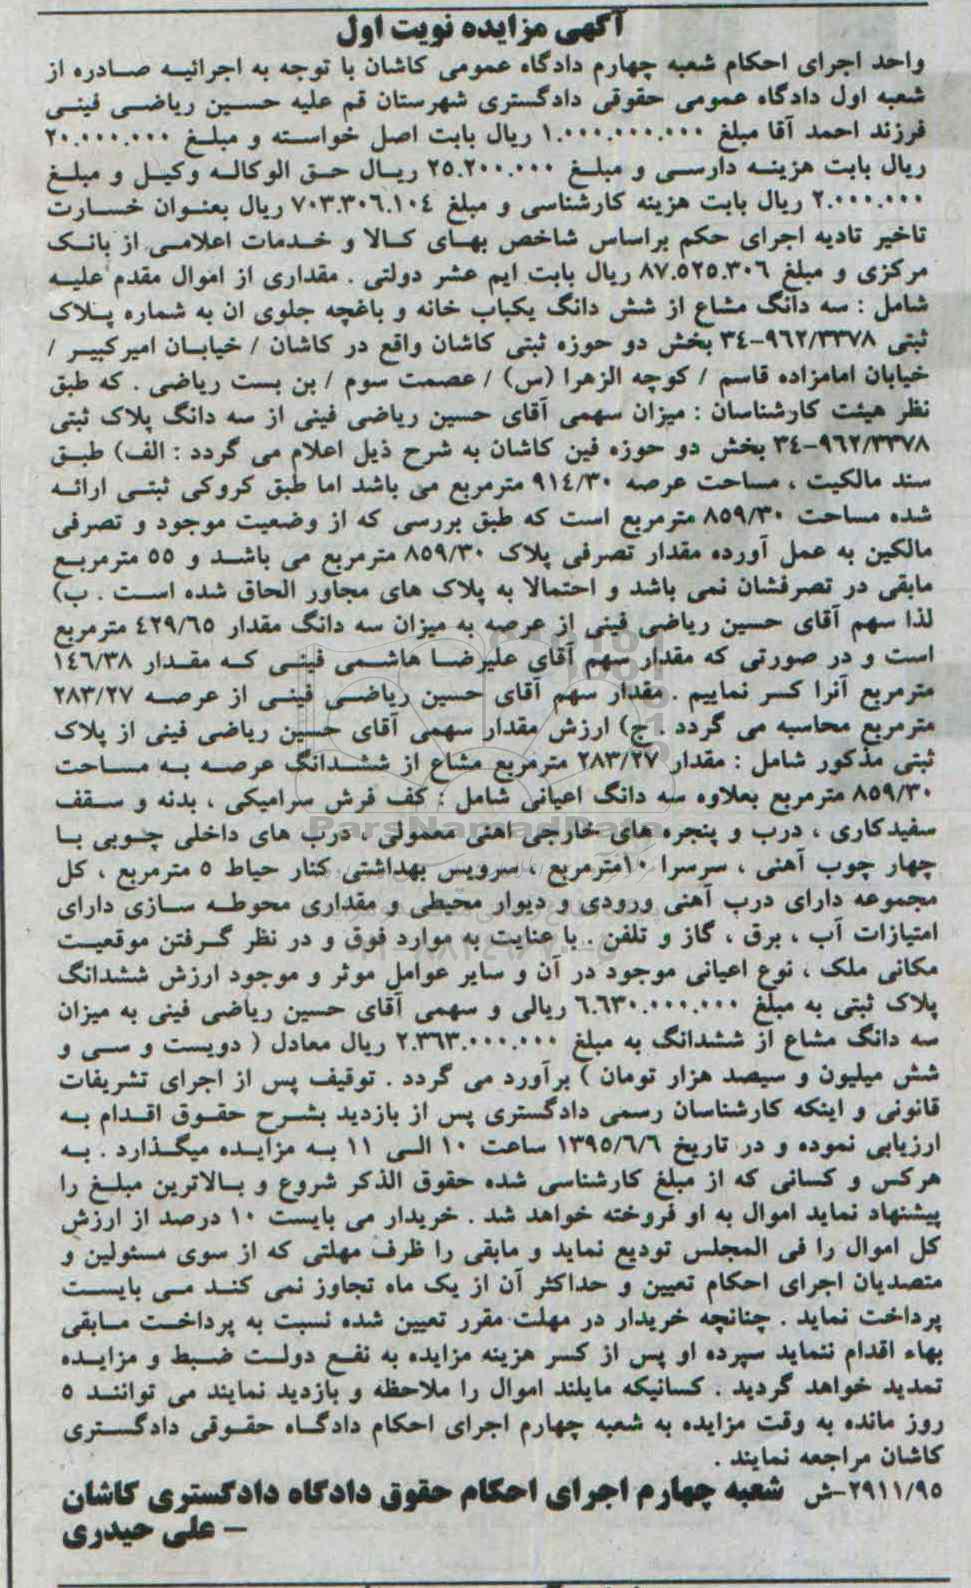 آگهی مزایده نوبت اول
واحد اجرای احکام شعبه چهارم دادگاه عمومی کاشان با توجه به اجرائیه صادره از
شعبه اول دادگاه عمومی حقوقی دادگستری شهرستان قم علیه حسین ریاضی فینی
فرزند احمد آقا مبلغ ۱.۰۰۰.۰۰۰.۰۰۰ ریال بابت اصل خواسته و مبلغ ۲۰.۰۰۰.۰۰۰
ریال بابت هزینه دارسی و مبلغ ۲۵.۲۰۰.۰۰۰ ریال حق الوکاله وکیل و مبلغ
۲.۰۰۰.۰۰۰ ریال بابت هزینه کارشناسی و مبلغ ۷۰۳.۳۰۶.۱۰۴ ریال بعنوان خسارت
تاخیر تادیه اجرای حکم براساس شاخص بهای کالا و خدمات اعلامی از بانک
مرکزی و مبلغ ۸۷.۵۲۵.۳۰۶ ریال بابت ایم عشر دولتی . مقداری از اموال مقدم علیه
شامل : سه دانگ مشاع از شش دانگ یکباب خانه و باغچه جلوی ان به شماره پلاک
ثبتی ۹۶۲/۳۳۷۸-۳۴ بخش دو حوزه ثبتی کاشان واقع در کاشان / خیابان امیرکبیر /
خیابان امامزاده قاسم / کوچه الزهرا (س) / عصمت سوم / بن بست ریاضی . که طبق
نظر هیئت کارشناسان : میزان سهمی آقای حسین ریاضی فینی از سه دانگ پلاک ثبتی
۹۶۲/۳۳۷۸-۳۴ بخش دو حوزه فین کاشان به شرح ذیل اعلام می گردد : الف) طبق
سند مالکیت ، مساحت عرصه ۹۱۴/۳۰ مترمربع می باشد اما طبق کروکی ثبتی ارائه
شده مساحت ۸۵۹/۳۰ مترمربع است که طبق بررسی که از وضعیت موجود و تصرفی
مالکین به عمل آورده مقدار تصرفی پلاک ۸۵۹/۳۰ مترمربع می باشد و ۵۵ مترمربع
مابقی در تصرفشان نمی باشد و احتمالا به پلاک های مجاور الحاق شده است . ب)
لذا سهم آقای حسین ریاضی فینی از عرصه به میزان سه دانگ مقدار ۴۲۹/۶۵ مترمربع
است و در صورتی که مقدار سهم آقای علیرضا هاشمی فینی که مقدار ۱۴۶/۳۸
مترمربع آنرا کسر نماییم . مقدار سهم آقای حسین ریاضی فینی از عرصه ۲۸۳/۲۷
مترمربع محاسبه می گردد . ج) ارزش مقدار سهمی آقای حسین ریاضی فینی از پلاک
ثبتی مذکور شامل : مقدار ۲۸۳/۲۷ مترمربع مشاع از ششدانگ عرصه به مساحت
۸۵۹/۳۰ مترمربع بعلاوه سه دانگ اعیانی شامل : کف فرش سرامیکی ، بدنه و سقف
سفیدکاری ، درب و پنجره های خارجی اهنی معمولی ، درب های داخلی چوبی با
چهار چوب آهنی ، سرسرا ۱۰مترمربع ، سرویس بهداشتی کنار حیاط ۵ مترمربع ، کل
مجموعه دارای درب آهنی ورودی و دیوار محیطی و مقداری محوطه سازی دارای
امتیازات آب ، برق ، گاز و تلفن . با عنایت به موارد فوق و در نظر گرفتن موقعیت
مکانی ملک ، نوع اعیانی موجود در آن و سایر عوامل موثر و موجود ارزش ششدانگ
پلاک ثبتی به مبلغ ۶.۶۳۰.۰۰۰.۰۰۰ ریالی و سهمی آقای حسین ریاضی فینی به میزان
سه دانگ مشاع از ششدانگ به مبلغ ۲.۳۶۳.۰۰۰.۰۰۰ ریال معادل ( دویست و سی و
شش میلیون و سیصد هزار تومان ) برآورد می گردد . توقیف پس از اجرای تشریفات
قانونی و اینکه کارشناسان رسمی دادگستری پس از بازدید بشرح حقوق اقدام به
ارزیابی نموده و در تاریخ ۱۳۹۵/۶/۶ ساعت ۱۰ الی ۱۱ به مزایده میگذارد . به
هرکس و کسانی که از مبلغ کارشناسی شده حقوق الذکر شروع و بالاترین مبلغ را
پیشنهاد نماید اموال به او فروخته خواهد شد . خریدار می بایست ۱۰ درصد از ارزش
کل اموال را فی المجلس تودیع نماید و مابقی را ظرف مهلتی که از سوی مسئولین و
متصدیان اجرای احکام تعیین و حداکثر آن از یک ماه تجاوز نمی کند می بایست
پرداخت نماید . چنانچه خریدار در مهلت مقرر تعیین شده نسبت به پرداخت مابقی
بهاء اقدام ننماید سپرده او پس از کسر هزینه مزایده به نفع دولت ضبط و مزایده
تمدید خواهد گردید . کسانیکه مایلند اموال را ملاحظه و بازدید نمایند می توانند ۵
روز مانده به وقت مزایده به شعبه چهارم اجرای احکام دادگاه حقوقی دادگستری
کاشان مراجعه نمایند .
۲۹۱۱/۹۵-ش شعبه چهارم اجرای احکام حقوق دادگاه دادگستری کاشان
– علی حیدری
ParsNamadData